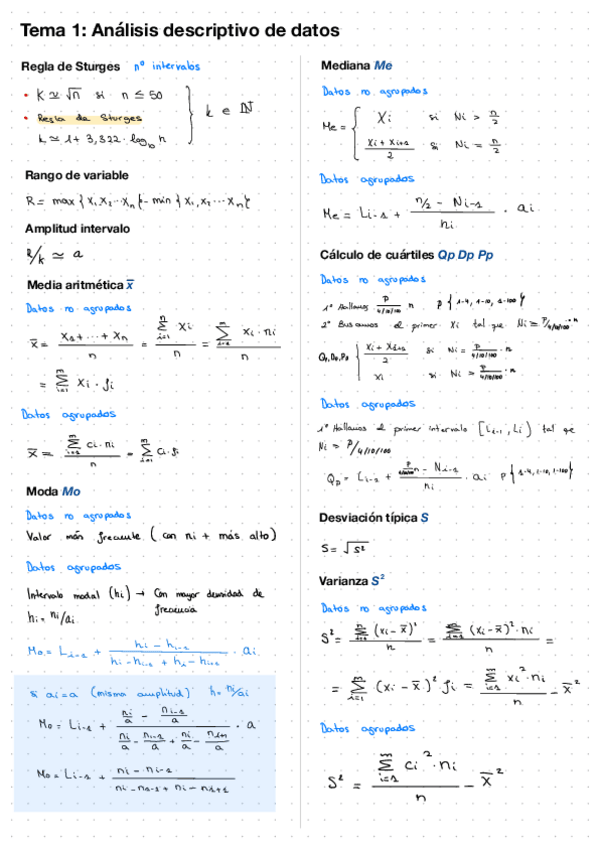 Tema 1: Análisis descriptivo de datos
Regla de Sturges nº intervalos
• K ≃ √n si n ≤ 50
• Regla de Sturges
k ≃ 1 + 3,322 · log₁₀ n
} k ∈ ℕ
Rango de variable
R = max { x₁, x₂ ... xₙ } - min { x₁, x₂ ... xₙ }
Amplitud intervalo
R/k ≃ a
Media aritmética x̅
Datos no agrupados
x̅ = (x₁ + ... + xₙ)/n = (Σⁿᵢ₌₁ xᵢ)/n = (Σᵐᵢ₌₁ xᵢ · nᵢ)/n
= Σᵐᵢ₌₁ xᵢ · fᵢ
Datos agrupados
x̅ = (Σᵐᵢ₌₁ cᵢ · nᵢ)/n = Σᵐᵢ₌₁ cᵢ · fᵢ
Moda Mo
Datos no agrupados
Valor más frecuente (con ni + más alto)
Datos agrupados
Intervalo modal (hi) → Con mayor densidad de
frecuencia
hi = ni/ai
Mo = Li-1 + (hi - hi-1)/(hi - hi-1 + hi - hi+1) · ai
Si ai = a (misma amplitud) h = ni/ai
Mo = Li-1 + (ni/a - ni-1/a)/(ni/a - ni-1/a + ni/a - ni+1/a) · a
Mo = Li-1 + (ni - ni-1)/(ni - ni-1 + ni - ni+1)
Mediana Me
Datos no agrupados
Me = { Xi si Ni > n/2
(xi + xi+1)/2 si Ni = n/2
Datos agrupados
Me = Li-1 + (n/2 - Ni-1)/ni · ai
Cálculo de cuártiles Qp Dp Pp
Datos no agrupados
1º Hallamos p/(4/10/100) · n p { 1-4, 1-10, 1-100 }
2º Buscamos el primer xi tal que Ni ≥ p/(4/10/100) · n
Qp, Dp, Pp { (xi + xi+1)/2 si Ni = p/(4/10/100) · n
xi si Ni > p/(4/10/100) · n
Datos agrupados
1º Hallamos el primer intervalo [Li-1, Li) tal que
Ni ≥ p/4/10/100
Qp = Li-1 + (p/(4/10/100) n - Ni-1)/ni · ai p { 1-4, 1-10, 1-100 }
Desviación típica S
S = √S²
Varianza S²
Datos no agrupados
S² = (Σⁿᵢ₌₁ (xi - x̅)²)/n = (Σᵐᵢ₌₁ (xi - x̅)² · ni)/n =
= Σᵐᵢ₌₁ (xi - x̅)² fi = (Σᵐᵢ₌₁ xi² · ni)/n - x̅²
Datos agrupados
S² = (Σᵐᵢ₌₁ ci² · ni)/n - x̅²